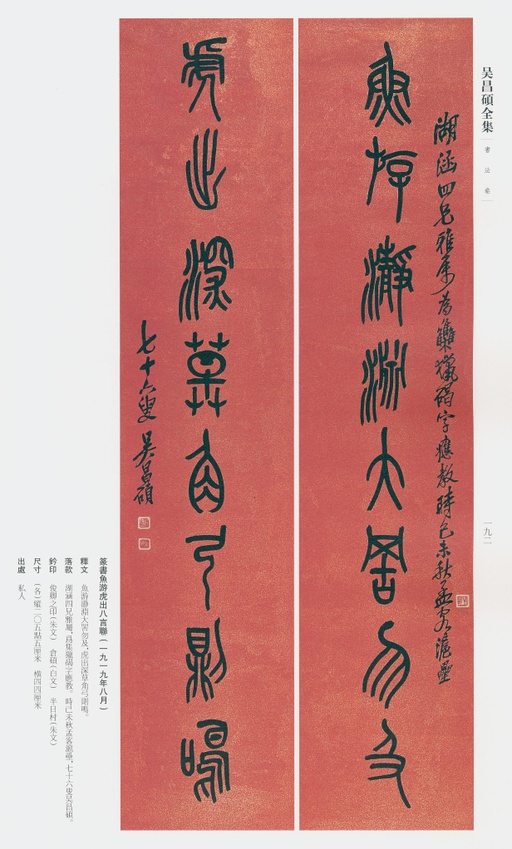 吴昌碩全集
書法卷
一九二
湖涵四兄雅屬爲集獵碣字應教時己未秋孟客滬壘
魚游瀞淵大罟勿及
虎出深草角弓則鳴
七十六叟吴昌碩
篆書魚游虎出八言聯(一九一九年八月)
釋文 魚游瀞淵大罟勿及,虎出深草角弓則鳴。
落款 湖涵四兄雅屬,爲集獵碣字應教。時己未秋孟客滬壘,七十六叟吴昌碩。
鈐印 俊卿之印(朱文) 倉碩(白文) 半日村(朱文)
尺寸 (各)縱二〇五點五厘米 橫四四厘米
出處 私人